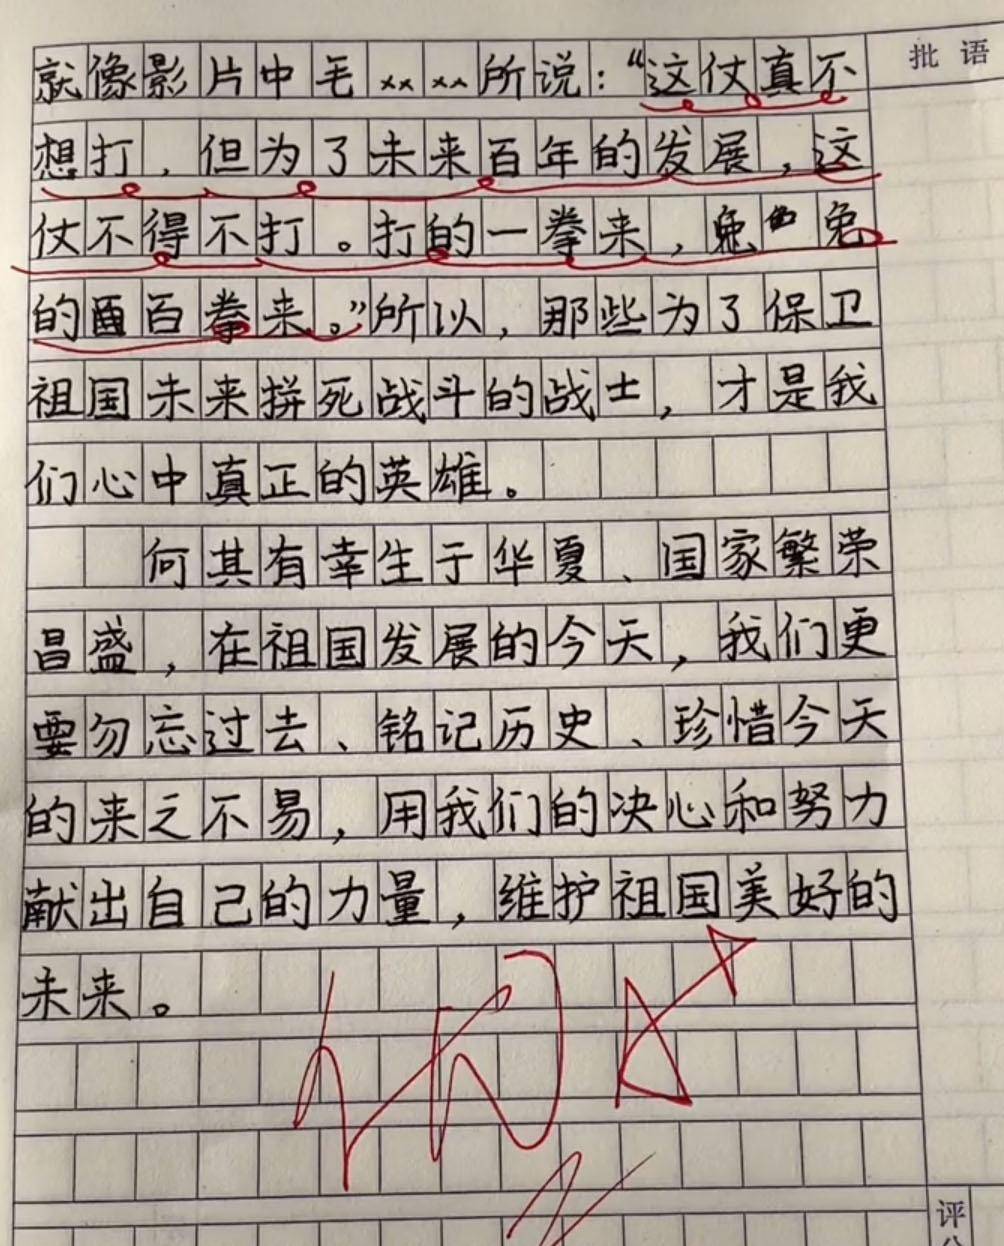 批语
就像影片中毛××××所说：“这仗真不
想打，但为了未来百年的发展，这
仗不得不打。打的一拳来，兔色兔
的酉百拳来。”所以，那些为了保卫
祖国未来拼死战斗的战士，才是我
们心中真正的英雄。
何其有幸生于华夏、国家繁荣
昌盛，在祖国发展的今天，我们更
要勿忘过去、铭记历史、珍惜今天
的来之不易，用我们的决心和努力
献出自己的力量，维护祖国美好的
未来。
评